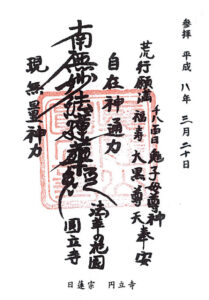 參拝 平成 八年 三月二十日
荒行願満
鬼子母尊神
福寿 大黒尊天 奉安
自在神通力
南無妙法蓮華経
現無量神力
の花園
圓立寺
日蓮宗 円立寺